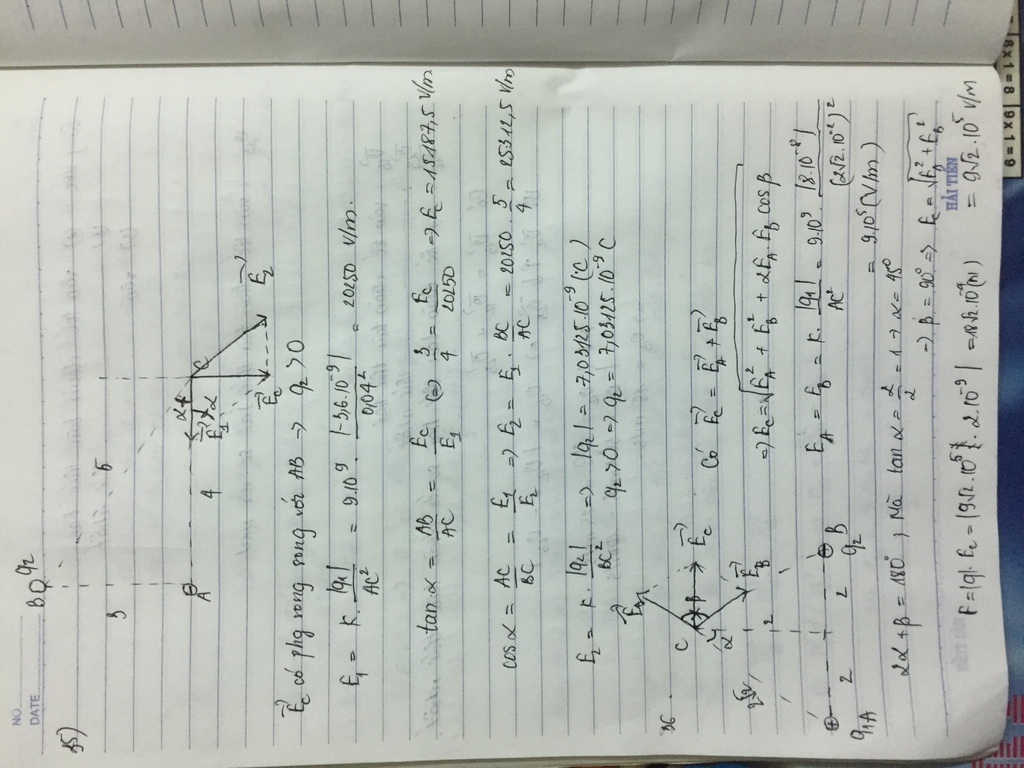 NO
DATE
35)
B q₂
3
5
A
4
α
E₁→
α
C
E_C→
E₂→
E_C→ có phg song song với AB → q₂ > 0
E₁ = K. |q₁|/AC² = 9.10⁹. |-3,6.10⁻⁹|/0,04² = 20250 V/m.
tan α = AB/AC = E_C/E₁ (=) 3/4 = E_C/20250 => E_C = 15187,5 V/m
cos α = AC/BC = E₁/E₂ => E₂ = E₁. BC/AC = 20250. 5/4 = 25312,5 V/m
E₂ = K. |q₂|/BC² => |q₂| = 7,03125.10⁻⁹ (C)
q₂ > 0 => q₂ = 7,03125.10⁻⁹ C
36.
E_A→
C
β
E_C→
α
E_B→
2√2
2
2
2
q₁A
q₂
B
Có E_C→ = E_A→ + E_B→
=> E_C = √(E_A² + E_B² + 2E_A.E_B cos β)
E_A = E_B = K. |q₁|/AC² = 9.10⁹. |8.10⁻⁸|/(2√2.10⁻²)²
= 9.10⁵ (V/m)
2α + β = 180° ; Mà tan α = 2/2 = 1 → α = 45°
→ β = 90° => E_C = √(E_A² + E_B²)
HẢI TIẾN
F = |q|. E_C = |9√2.10⁵. 2.10⁻⁹| = 18√2.10⁻⁴ (N)
= 9√2.10⁵ V/m
8x1=8
9x1=9